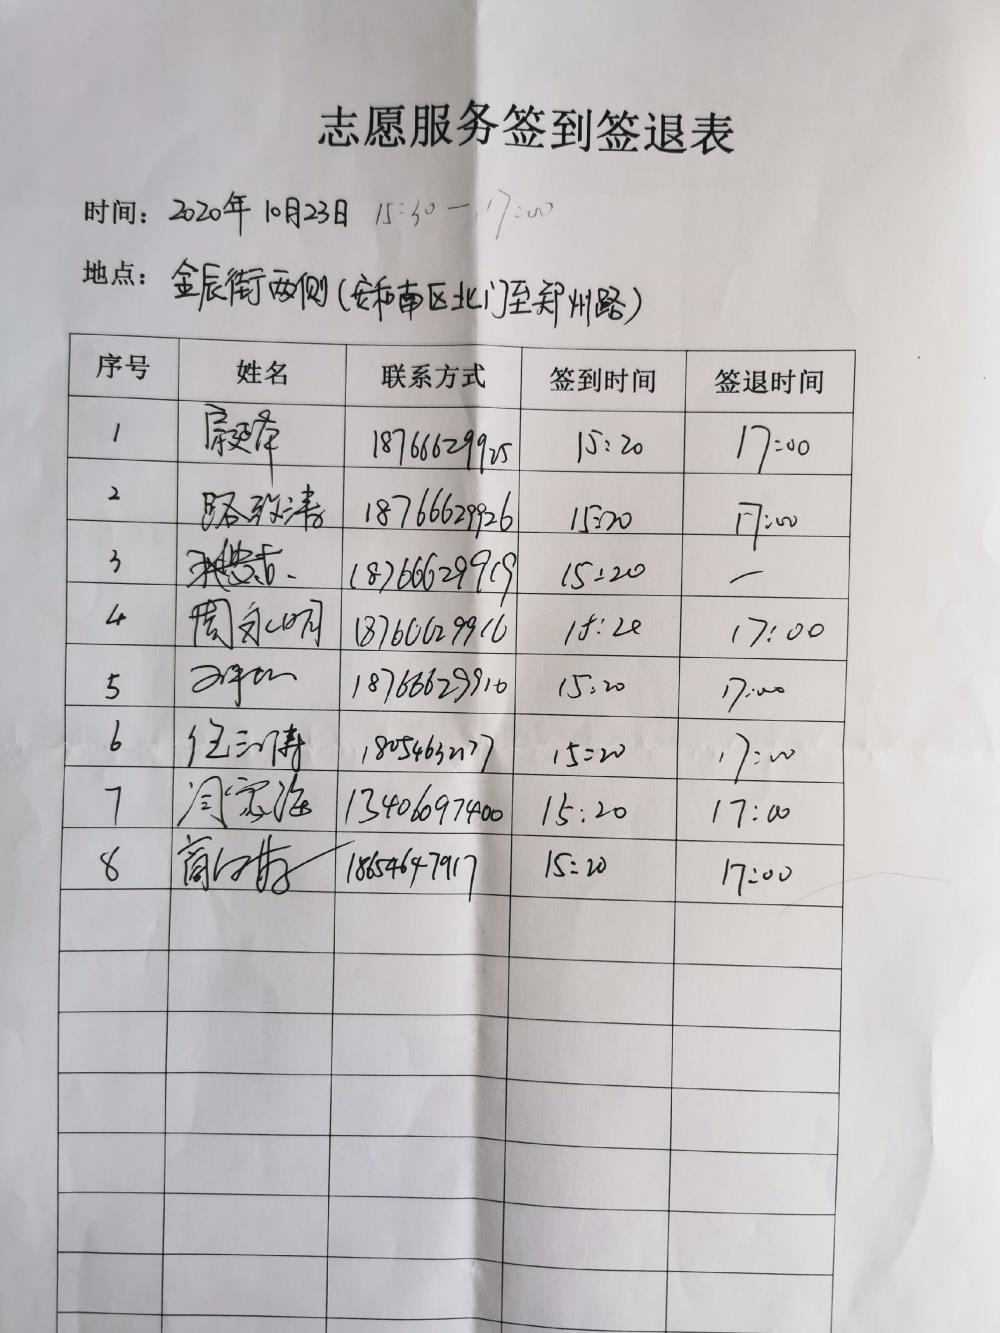 志愿服务签到签退表
时间：2020年10月23日 15:30—17:00
地点：金辰街两侧(安和南区北门至郑州路)
序号 姓名 联系方式 签到时间 签退时间
1 18766629925 15:20 17:00
2 路致涛 18766629926 15:20 17:00
3 18766629919 15:20 —
4 周永明 18766629916 15:20 17:00
5 18766629910 15:20 17:00
6 任三涛 15:20 17:00
7 13406097400 15:20 17:00
8 18654647917 15:20 17:00